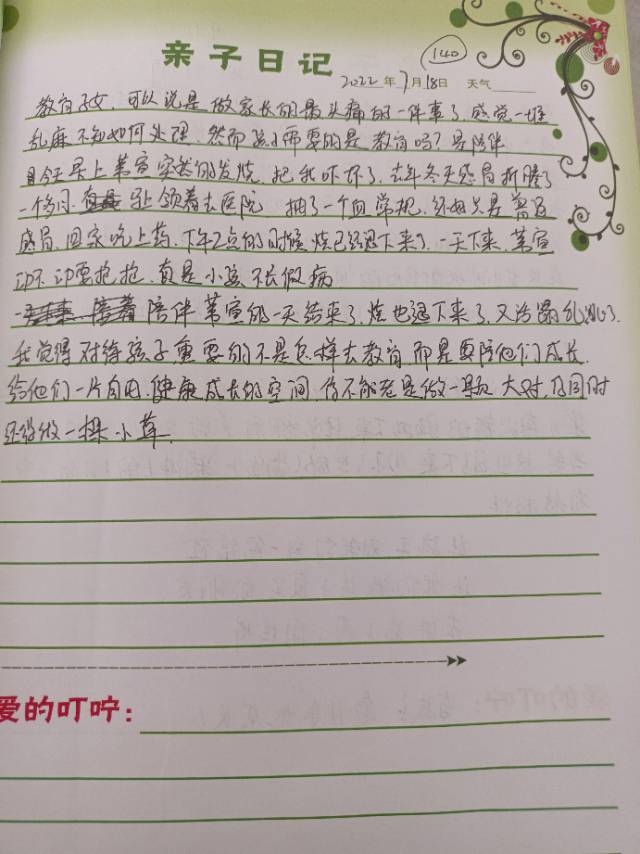 亲子日记
140
2022年7月18日 天气
教育子女,可以说是做家长的最头痛的一件事了,感觉一堆
乱麻不知如何处理,然而孩子需要的是教育吗?是陪伴
今天早上 突然的发烧,把我吓坏了,去年冬天感冒折腾了
一个多月 领着去医院 抽了一个血常规,还好只是着凉
感冒,回家吃上药,下午2点的时候烧已经退下来了,一天下来,
要抱抱,真是小孩不长假病
陪伴 的一天结束了,烧也退下来了,又活蹦乱跳了
我觉得对待孩子重要的不是怎样去教育而是要陪他们成长,
给他们一片自由、健康成长的空间,你不能老是做一颗大树,及同时
还得做一棵小草.
爱的叮咛: